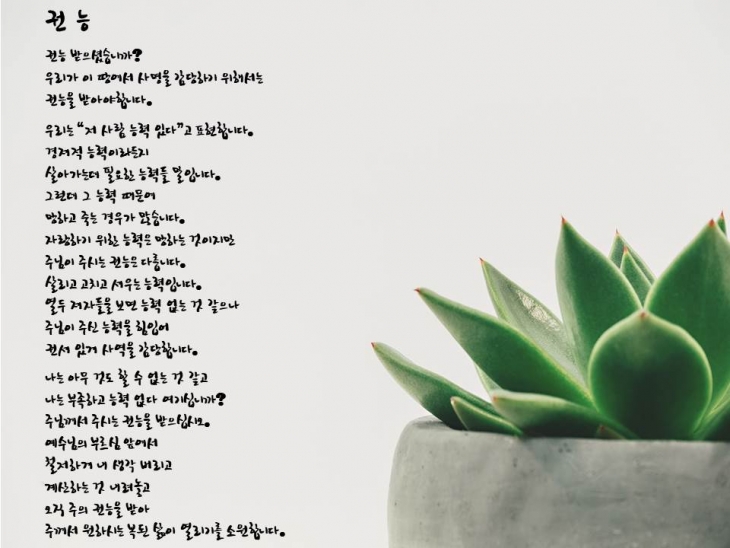 권능
권능 받으셨습니까?
우리가 이 땅에서 사명을 감당하기 위해서는
권능을 받아야합니다.
우리는 “저 사람 능력 있다”고 표현합니다.
경제적 능력이라든지
살아가는데 필요한 능력들 말입니다.
그런데 그 능력 때문에
망하고 죽는 경우가 많습니다.
자랑하기 위한 능력은 망하는 것이지만
주님이 주시는 권능은 다릅니다.
살리고 고치고 세우는 능력입니다.
열두 제자들을 보면 능력 없는 것 같으나
주님이 주신 능력을 힘입어
권세 있게 사역을 감당합니다.
나는 아무 것도 할 수 없는 것 같고
나는 부족하고 능력 없다 여기십니까?
주님께서 주시는 권능을 받으십시오.
예수님의 부르심 앞에서
철저하게 내 생각 버리고
계산하는 것 내려놓고
오직 주의 권능을 받아
주께서 원하시는 복된 삶이 열리기를 소원합니다.